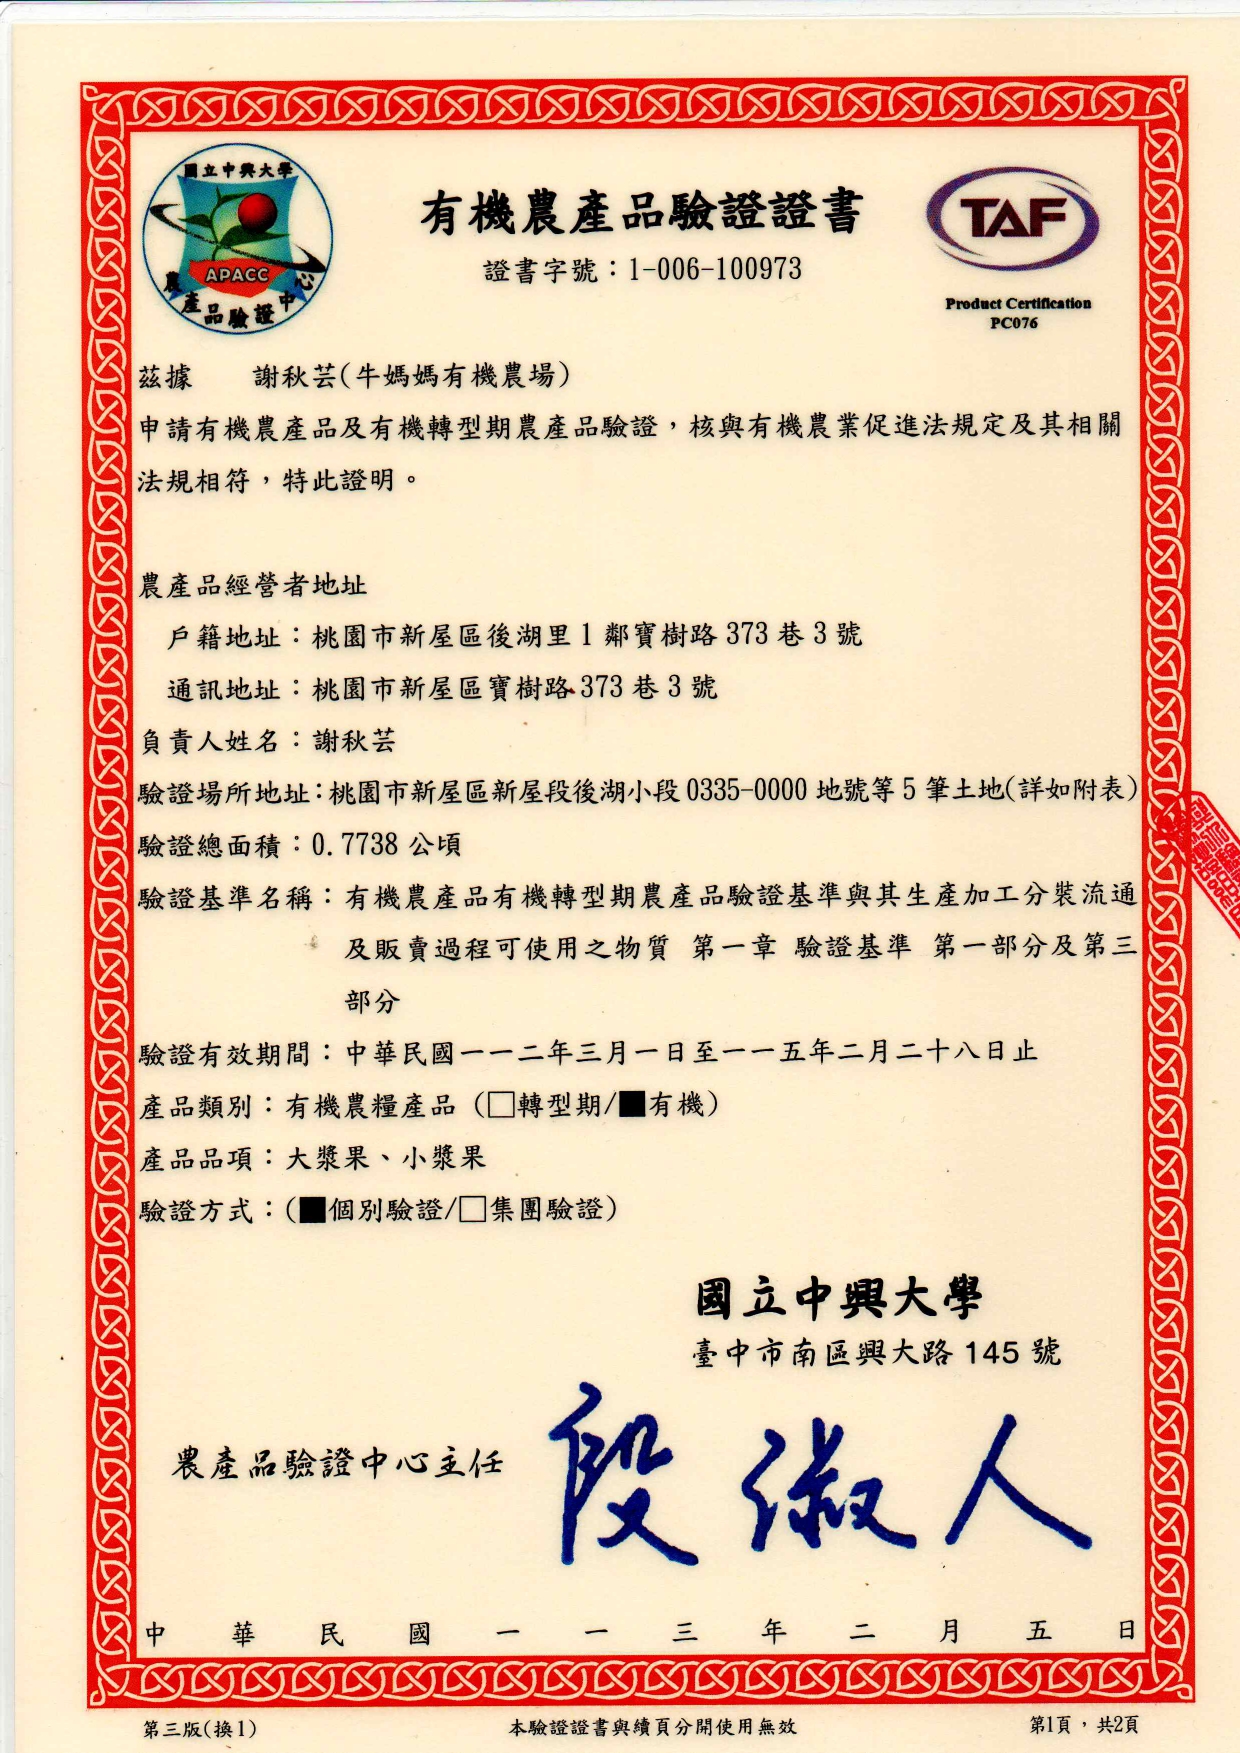 國立中興大學
APACC
農產品驗證中心
有機農產品驗證證書
TAF
證書字號：1-006-100973
Product Certification
PC076
茲據　　謝秋芸(牛媽媽有機農場)
申請有機農產品及有機轉型期農產品驗證，核與有機農業促進法規定及其相關
法規相符，特此證明。
農產品經營者地址
戶籍地址：桃園市新屋區後湖里 1 鄰寶樹路 373 巷 3 號
通訊地址：桃園市新屋區寶樹路 373 巷 3 號
負責人姓名：謝秋芸
驗證場所地址：桃園市新屋區新屋段後湖小段 0335-0000 地號等 5 筆土地(詳如附表)
驗證總面積：0.7738 公頃
驗證基準名稱：有機農產品有機轉型期農產品驗證基準與其生產加工分裝流通
及販賣過程可使用之物質 第一章 驗證基準 第一部分及第三
部分
驗證有效期間：中華民國一一二年三月一日至一一五年二月二十八日止
產品類別：有機農糧產品 (□轉型期/■有機)
產品品項：大漿果、小漿果
驗證方式：(■個別驗證/□集團驗證)
國立中興大學
臺中市南區興大路 145 號
農產品驗證中心主任 段淑人
中華民國一一三年二月五日
第三版(換1)　本驗證證書與續頁分開使用無效　第1頁，共2頁